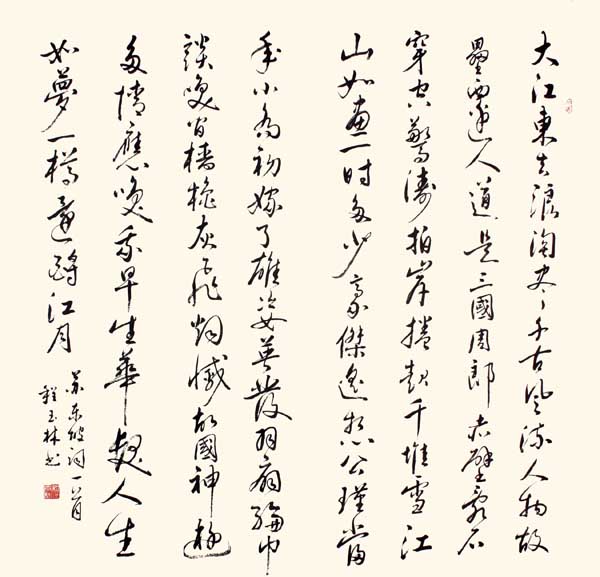 大江東去浪淘尽千古風流人物故
壘西邊人道是三國周郎赤壁亂石
穿空驚濤拍岸捲起千堆雪江
山如畫一時多少豪傑遙想公瑾當
年小喬初嫁了雄姿英發羽扇綸巾
談笑間檣櫓灰飛烟滅故國神遊
多情應笑我早生華髮人生
如夢一樽還酹江月
苏东坡词一首
程玉林书